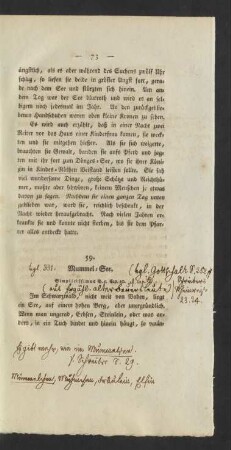 — 73 —
ängstlich, als es aber während des Suchens zwölf Uhr
schlug, so liefen sie beide in größter Angst fort, gerade
nach dem See und stürzten sich hinein. An
dem Tag war der See blutroth und wird es an selbigem
noch jedesmal im Jahr. An den zurückgebliebenen
Handschuhen waren oben kleine Kronen zu sehen.
Es wird auch erzählt, daß in einer Nacht zwei
Reiter vor das Haus einer Kinderfrau kamen, sie weckten
und sie mitgehen hießen. Als sie sich weigerte,
brauchten sie Gewalt, banden sie aufs Pferd und jagten
mit ihr fort zum Dönges-See, wo sie ihrer Königin
in Kindes-Nöthen Beistand leisten sollte. Sie sah
viel wundersame Dinge, große Schätze und Reichthümer,
mußte aber schwören, keinem Menschen je etwas
davon zu sagen. Nachdem sie einen ganzen Tag unten
geblieben war, wurde sie, reichlich beschenkt, in der
Nacht wieder heraufgebracht. Nach vielen Jahren erkrankte
sie und konnte nicht sterben, bis sie dem Pfarrer
alles entdeckt hatte.
59.
vgl. 331. Mummel-See. (vgl.
Im Schwarzwald, nicht weit von Baden, liegt
ein See, auf einem hohen Berg, aber unergründlich.
Wenn man ungerad, Erbsen, Steinlein, oder was anders,
in ein Tuch bindet und hinein hängt, so verän-
Es gibt mehr, wie ein Mummelsee.
s. Schreiber